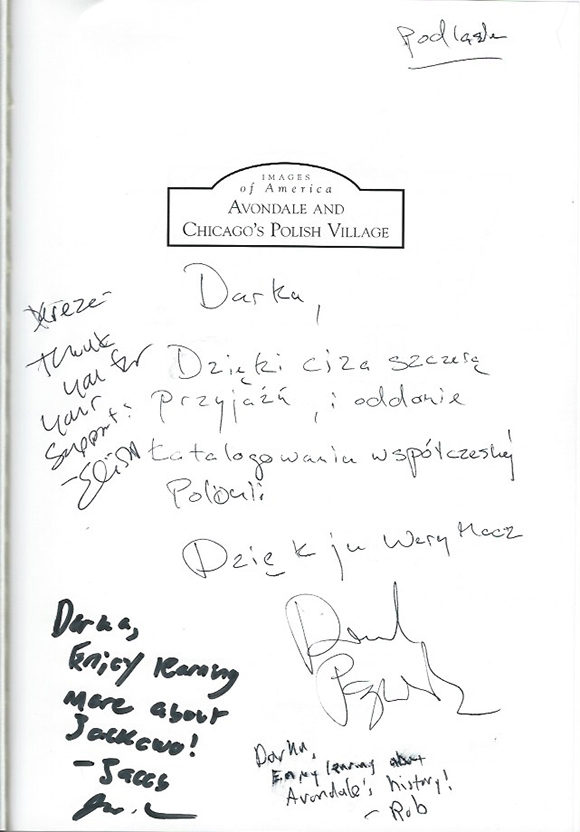 Podlasie
IMAGES
of America
AVONDALE AND
CHICAGO'S POLISH VILLAGE
Darka,
Dzięki ci za szczerą
przyjaźń, i oddanie
katalogowaniu współczesnej
Polonii
Dzięk ju Wery Macz
Thank
you for
your
support!
Darka,
Enjoy learning
more about
Jackowo!
-Jacob
Darka,
Enjoy learning about
Avondale's history!
- Rob